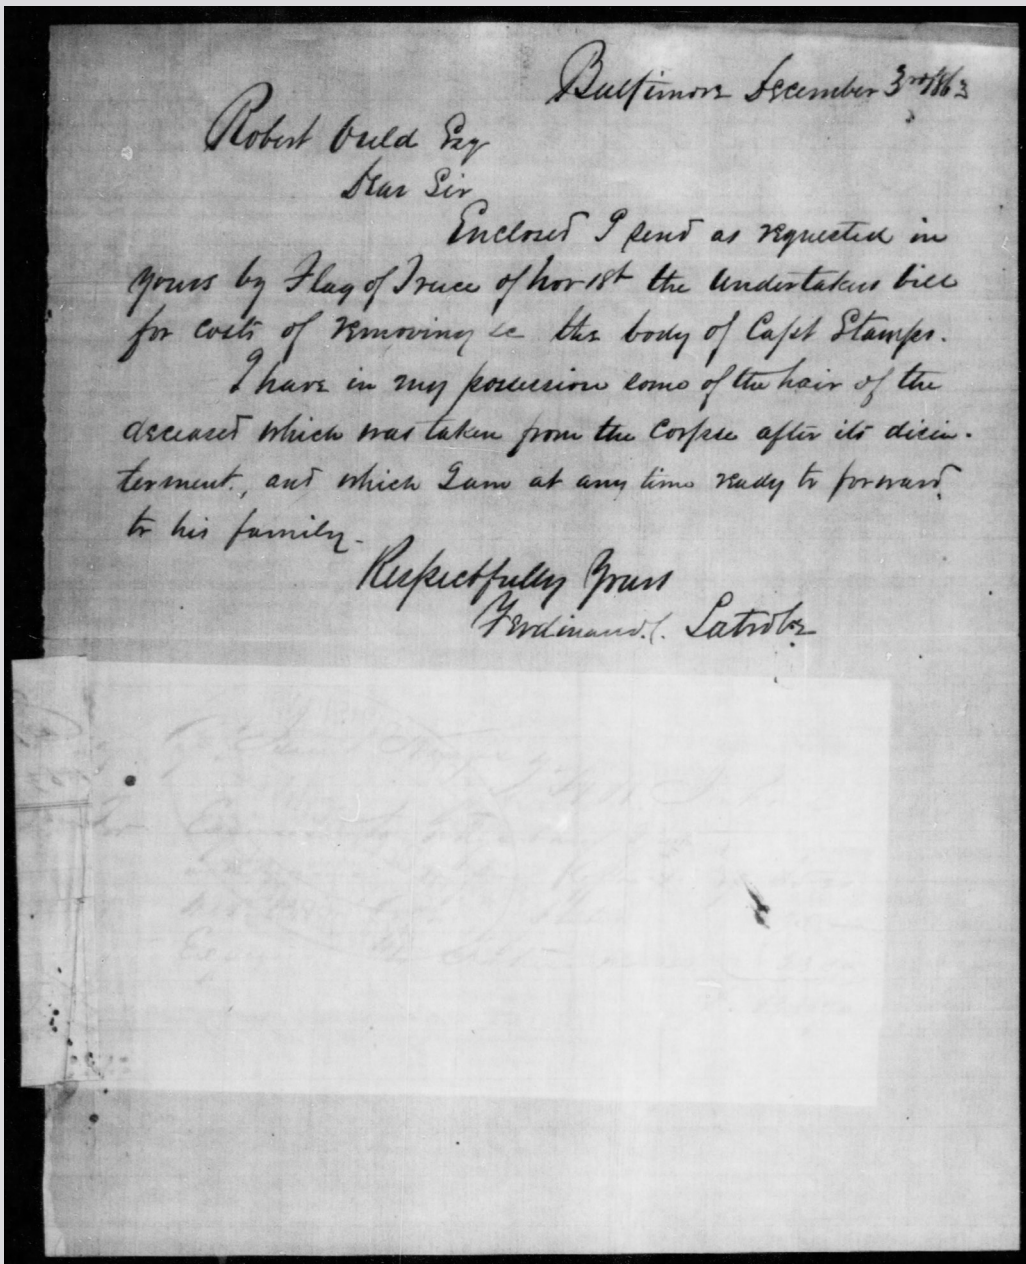 Baltimore December 3rd 1863
Robert Ould Esq
Dear Sir
Enclosed I send as requested in
yours by Flag of Truce of Nov 18th the Undertakers bill
for costs of removing &c the body of Capt Stamps.
I have in my possession some of the hair of the
deceased which was taken from the corpse after its disin-
terment, and which I am at any time ready to forward
to his family.
Respectfully Yours
Ferdinand. C. Latrobe